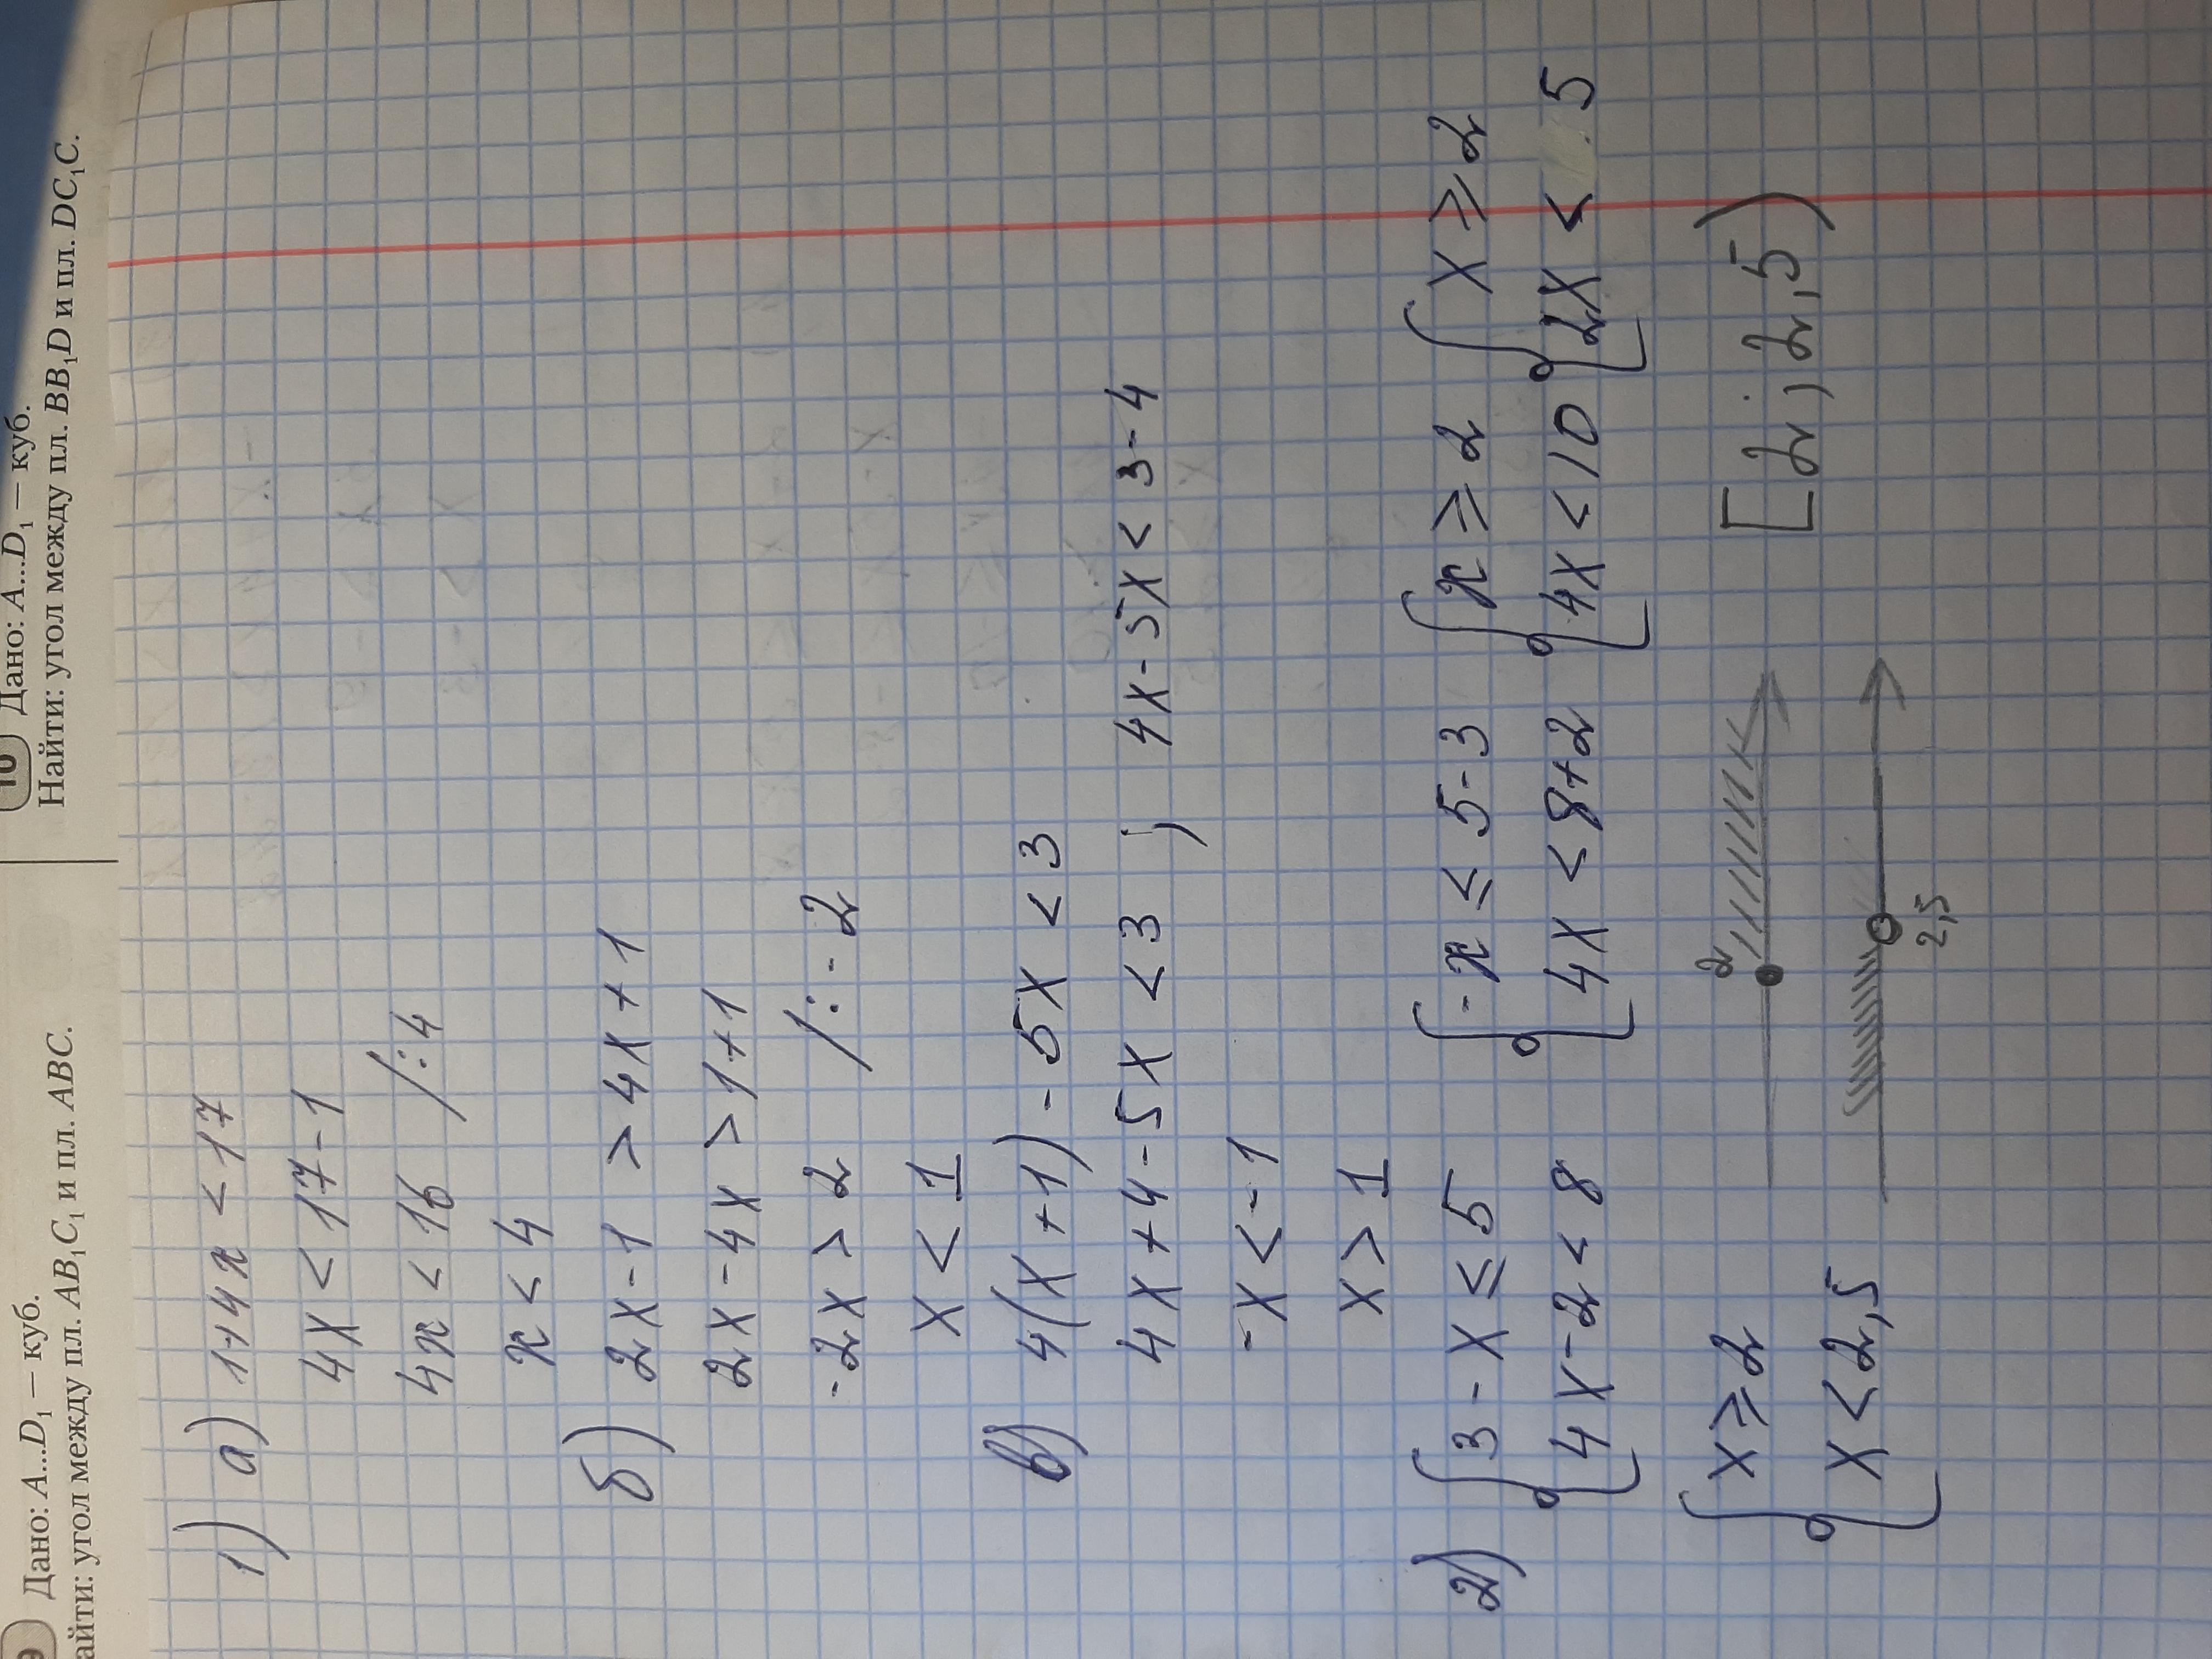 9 Дано: A...D₁ — куб.
айти: угол между пл. AB₁C₁ и пл. ABC.
10 Дано: A...D₁ — куб.
Найти: угол между пл. BB₁D и пл. DC₁C.
1) а) 1+4x < 17
4x < 17-1
4x < 16 /:4
x < 4
б) 2x-1 > 4x+1
2x-4x > 1+1
-2x > 2 /:-2
x < 1
в) 4(x+1) - 5x < 3
4x+4-5x < 3 ; 4x-5x < 3-4
-x < -1
x > 1
2) { 3-x ≤ 5 { -x ≤ 5-3 { x ≥ 2 { x ≥ 2
{ 4x-2 < 8 { 4x < 8+2 { 4x < 10 { 2x < 5
{ x ≥ 2 2 [2; 2,5)
{ x < 2,5 2,5